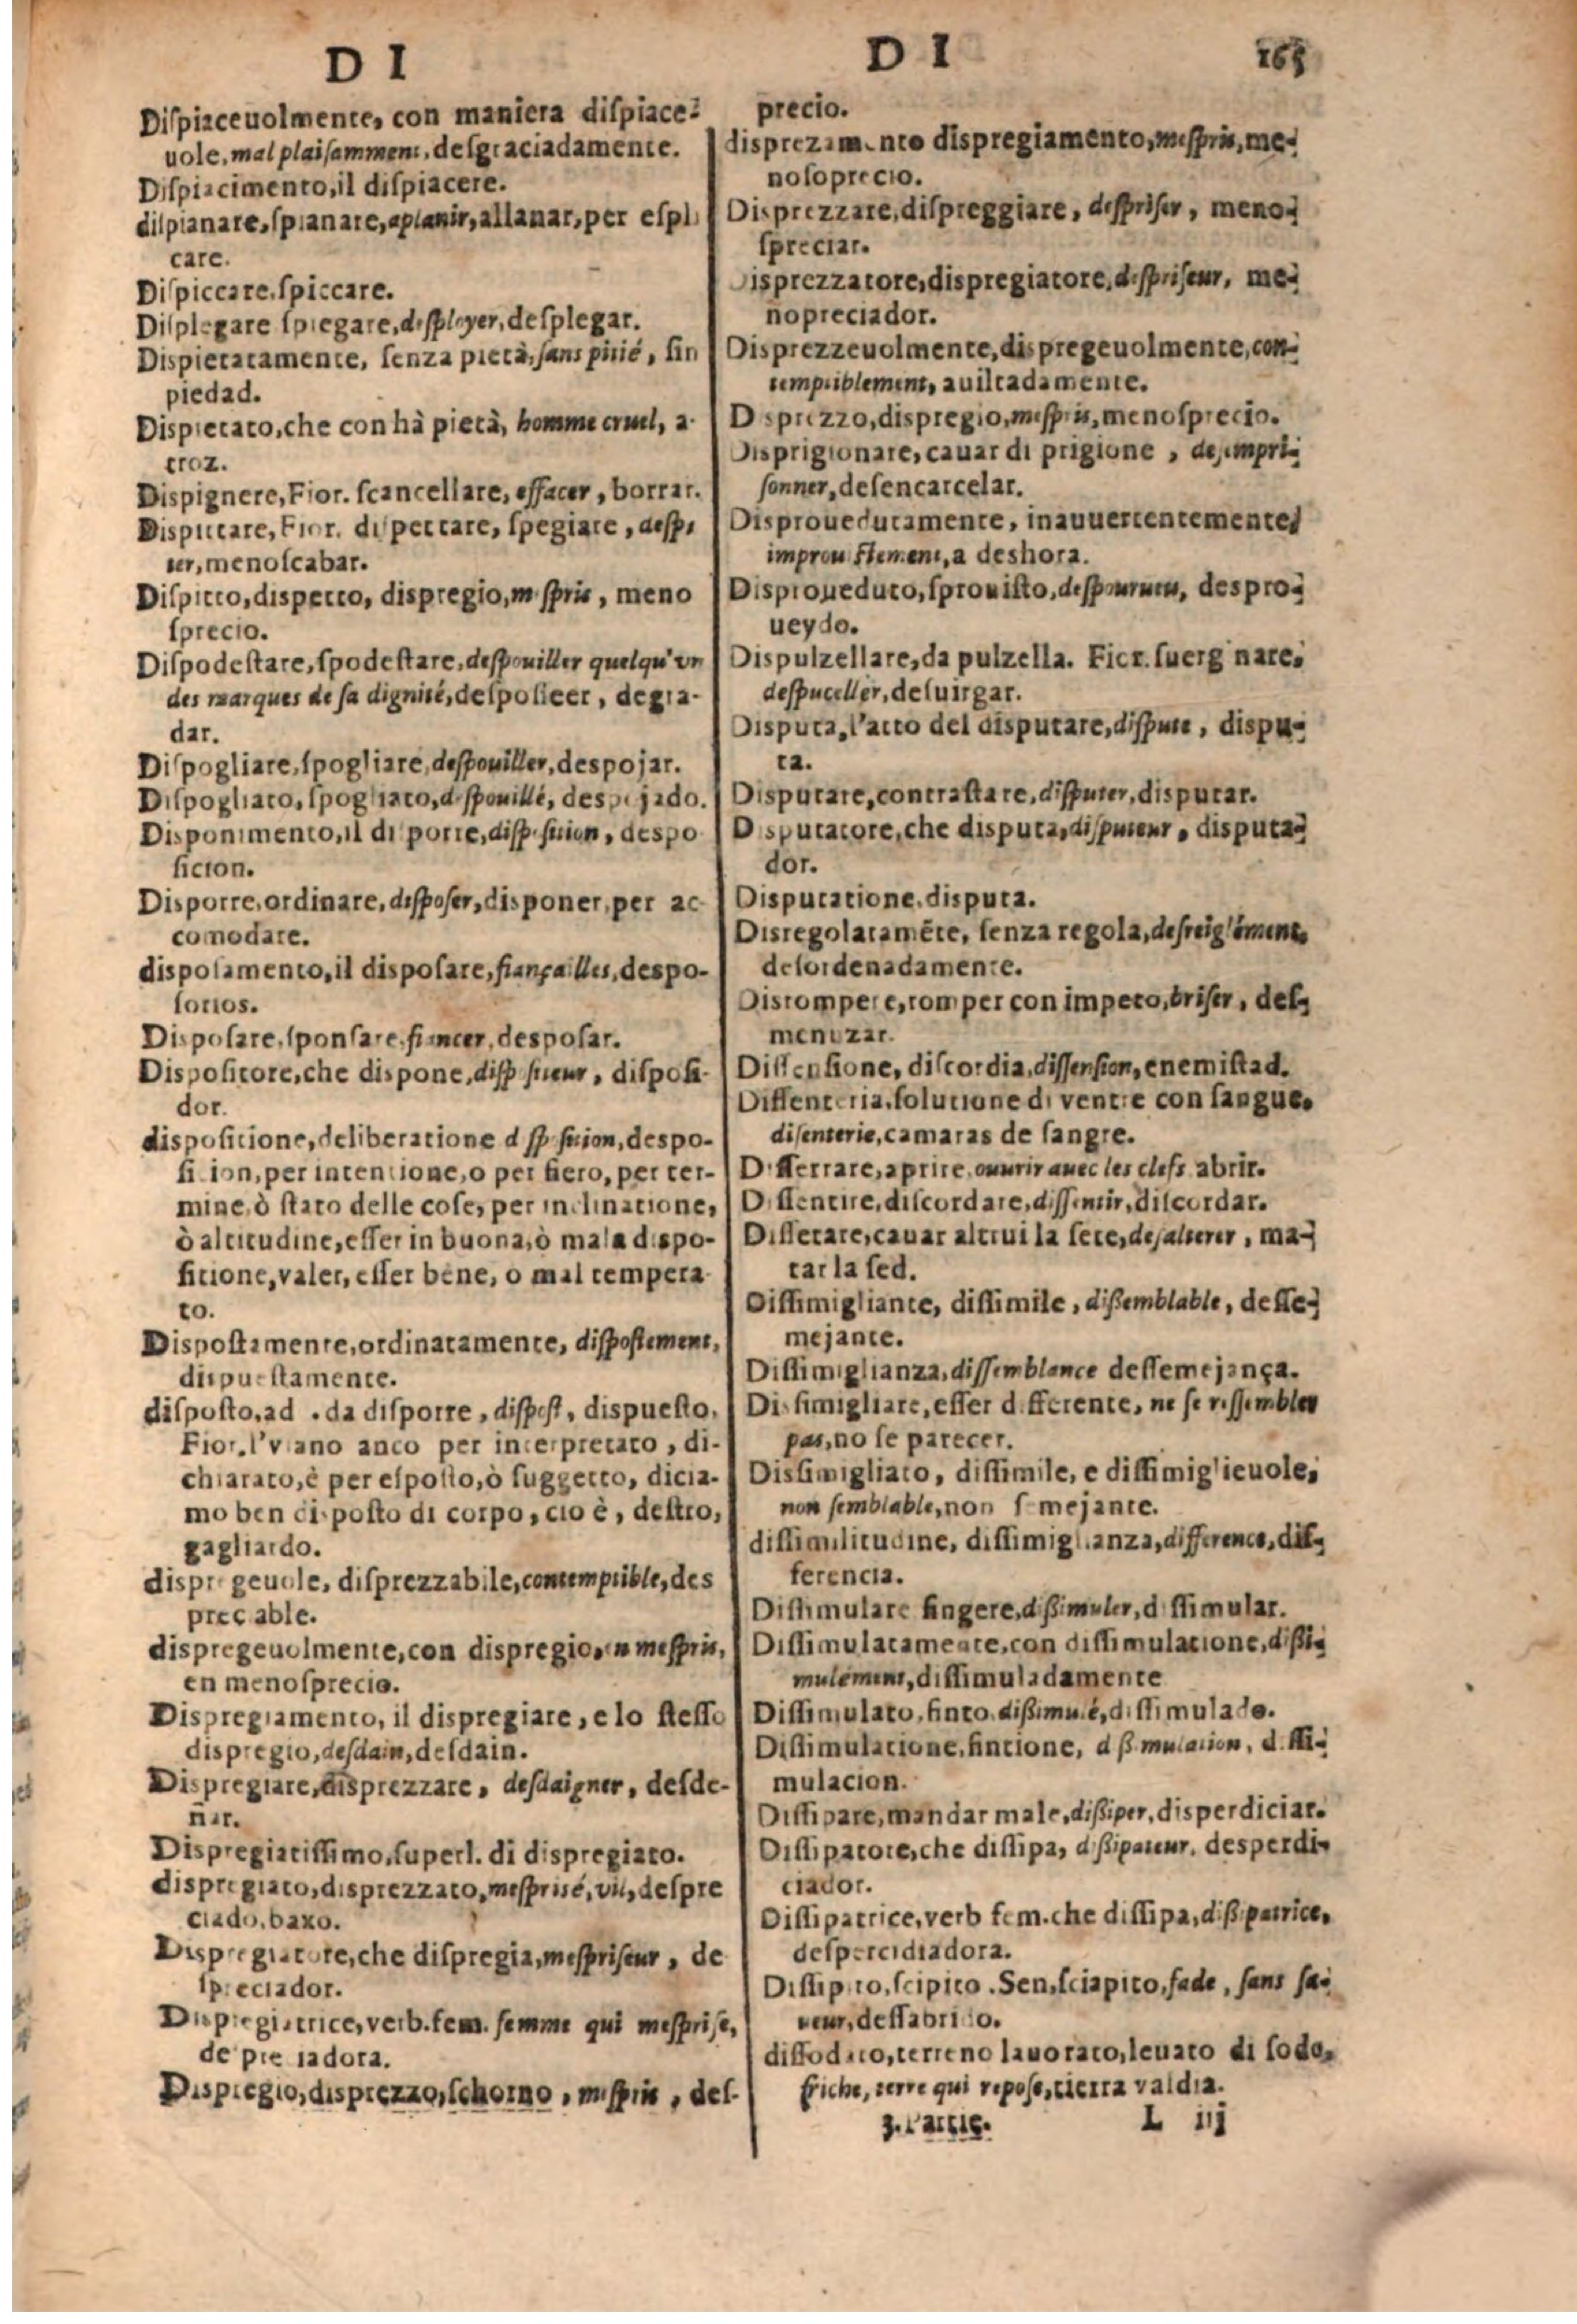 D I
Diſpiaceuolmente, con maniera diſpiace-
uole, mal plaiſamment, deſgraciadamente.
Diſpiacimento, il diſpiacere.
diſpianare, ſpianare, aplanir, allanar, per eſpli
care.
Diſpiccare, ſpiccare.
Diſplegare ſpiegare, deſployer, deſplegar.
Dispietatamente, ſenza pietà, ſans pitié, ſin
piedad.
Dispietato, che con hà pietà, homme cruel, a-
troz.
Dispignere, Fior. ſcancellare, effacer, borrar.
Dispittare, Fior. diſpettare, ſpegiare, deſpi
ter, menoſcabar.
Diſpitto, dispetto, dispregio, meſpris, meno
ſprecio.
Diſpodeſtare, ſpodeſtare, deſpouiller quelqu'vn
des marques de ſa dignité, deſpoſieer, degra-
dar.
Diſpogliare, ſpogliare, deſpouiller, despojar.
Diſpogliato, ſpogliato, deſpouillé, despojado.
Disponimento, il diſporre, diſpoſition, despo
ſicion.
Disporre, ordinare, diſpoſer, disponer, per ac
comodare.
dispoſamento, il disposare, fiançailles, despo-
ſorios.
Dispoſare, ſponſare, fiancer, desposar.
Dispoſitore, che dispone, diſpoſiteur, diſpoſi-
dor.
dispoſitione, deliberatione diſpoſition, despo-
ſicion, per intentione, o per fiero, per ter-
mine, ò ſtato delle coſe, per inclinatione,
ò altitudine, eſſer in buona, ò mala dispo-
ſitione, valer, eſſer bene, o mal tempera
to.
Dispoſtamente, ordinatamente, diſpoſtement,
dispueſtamente.
diſpoſto, ad. da diſporre, diſpoſt, dispueſto,
Fior. l'vſano anco per interpretato, di-
chiarato, è per eſpoſto, ò ſuggetto, dicia-
mo ben diſpoſto di corpo, cio è, deſtro,
gagliardo.
dispregeuole, diſprezzabile, contemptible, des
preçable.
dispregeuolmente, con dispregio, en meſpris,
en menoſprecio.
Dispregiamento, il dispregiare, e lo ſteſſo
dispregio, deſdain, deſdain.
Dispregiare, disprezzare, deſdaigner, deſde-
ñar.
Dispregiatiſſimo, ſuperl. di dispregiato.
dispregiato, disprezzato, meſpriſé, vil, deſpre
ciado, baxo.
Dispregiatore, che diſpregia, meſpriſeur, de
ſpreciador.
Dispregiatrice, verb. fem. femme qui meſpriſe,
deſpreciadora.
Dispregio, disprezzo, ſchorno, meſpris, deſ-
D I 165
precio.
disprezamento dispregiamento, meſpris, me-
noſoprecio.
Disprezzare, diſpreggiare, deſpriſer, meno-
ſpreciar.
Disprezzatore, dispregiatore, deſpriſeur, me-
nopreciador.
Disprezzeuolmente, dispregeuolmente, con-
temptiblement, auiltadamente.
Disprezzo, dispregio, meſpris, menoſprecio.
Disprigionare, cauar di prigione, deſempri-
ſonner, deſencarcelar.
Disprouedutamente, inauuertentemente,
improuiſtement, a deshora.
Disproueduto, ſprouiſto, deſpourueu, despro-
ueydo.
Dispulzellare, da pulzella. Fior. ſuerginare,
deſpuceller, deſuirgar.
Disputa, l'atto del disputare, diſpute, dispu-
ta.
Disputare, contraſtare, diſputer, disputar.
Disputatore, che disputa, diſputeur, disputa-
dor.
Disputatione, disputa.
Disregolatamẽte, ſenza regola, deſreiglément,
deſordenadamente.
Disrompere, romper con impeto, briſer, deſ-
menuzar.
Diſſenſione, diſcordia, diſſenſion, enemiſtad.
Diſſenteria, ſolutione di ventre con ſangue,
diſenterie, camaras de ſangre.
Diſſerrare, aprire, ouurir auec les clefs abrir.
Diſſentire, diſcordare, diſſentir, diſcordar.
Diſſetare, cauar altrui la ſete, deſalterer, ma-
tar la ſed.
Diſſimigliante, diſſimile, dißemblable, deſſe-
mejante.
Diſſimiglianza, diſſemblance deſſemejança.
Disſimigliare, eſſer differente, ne ſe reſſembler
pas, no ſe parecer.
Disſimigliato, diſſimile, e diſſimiglieuole,
non ſemblable, non ſemejante.
diſſimilitudine, diſſimiglianza, difference, dif-
ferencia.
Diſſimulare fingere, dißimuler, diſſimular.
Diſſimulatamente, con diſſimulatione, dißi-
mulément, diſſimuladamente
Diſſimulato, finto, dißimulé, diſſimulado.
Diſſimulatione, fintione, dißimulation, diſſi-
mulacion.
Diſſipare, mandar male, dißiper, disperdiciar.
Diſſipatore, che diſſipa, dißipateur, desperdi-
ciador.
Diſſipatrice, verb fem. che diſſipa, dißipatrice,
deſpercidiadora.
Diſſipito, ſcipito. Sen, ſciapito, fade, ſans ſa-
ueur, deſſabrido.
diſſodato, terreno lauorato, leuato di ſodo,
friche, terre qui repoſe, tierra valdia.
3. Partie. L iij